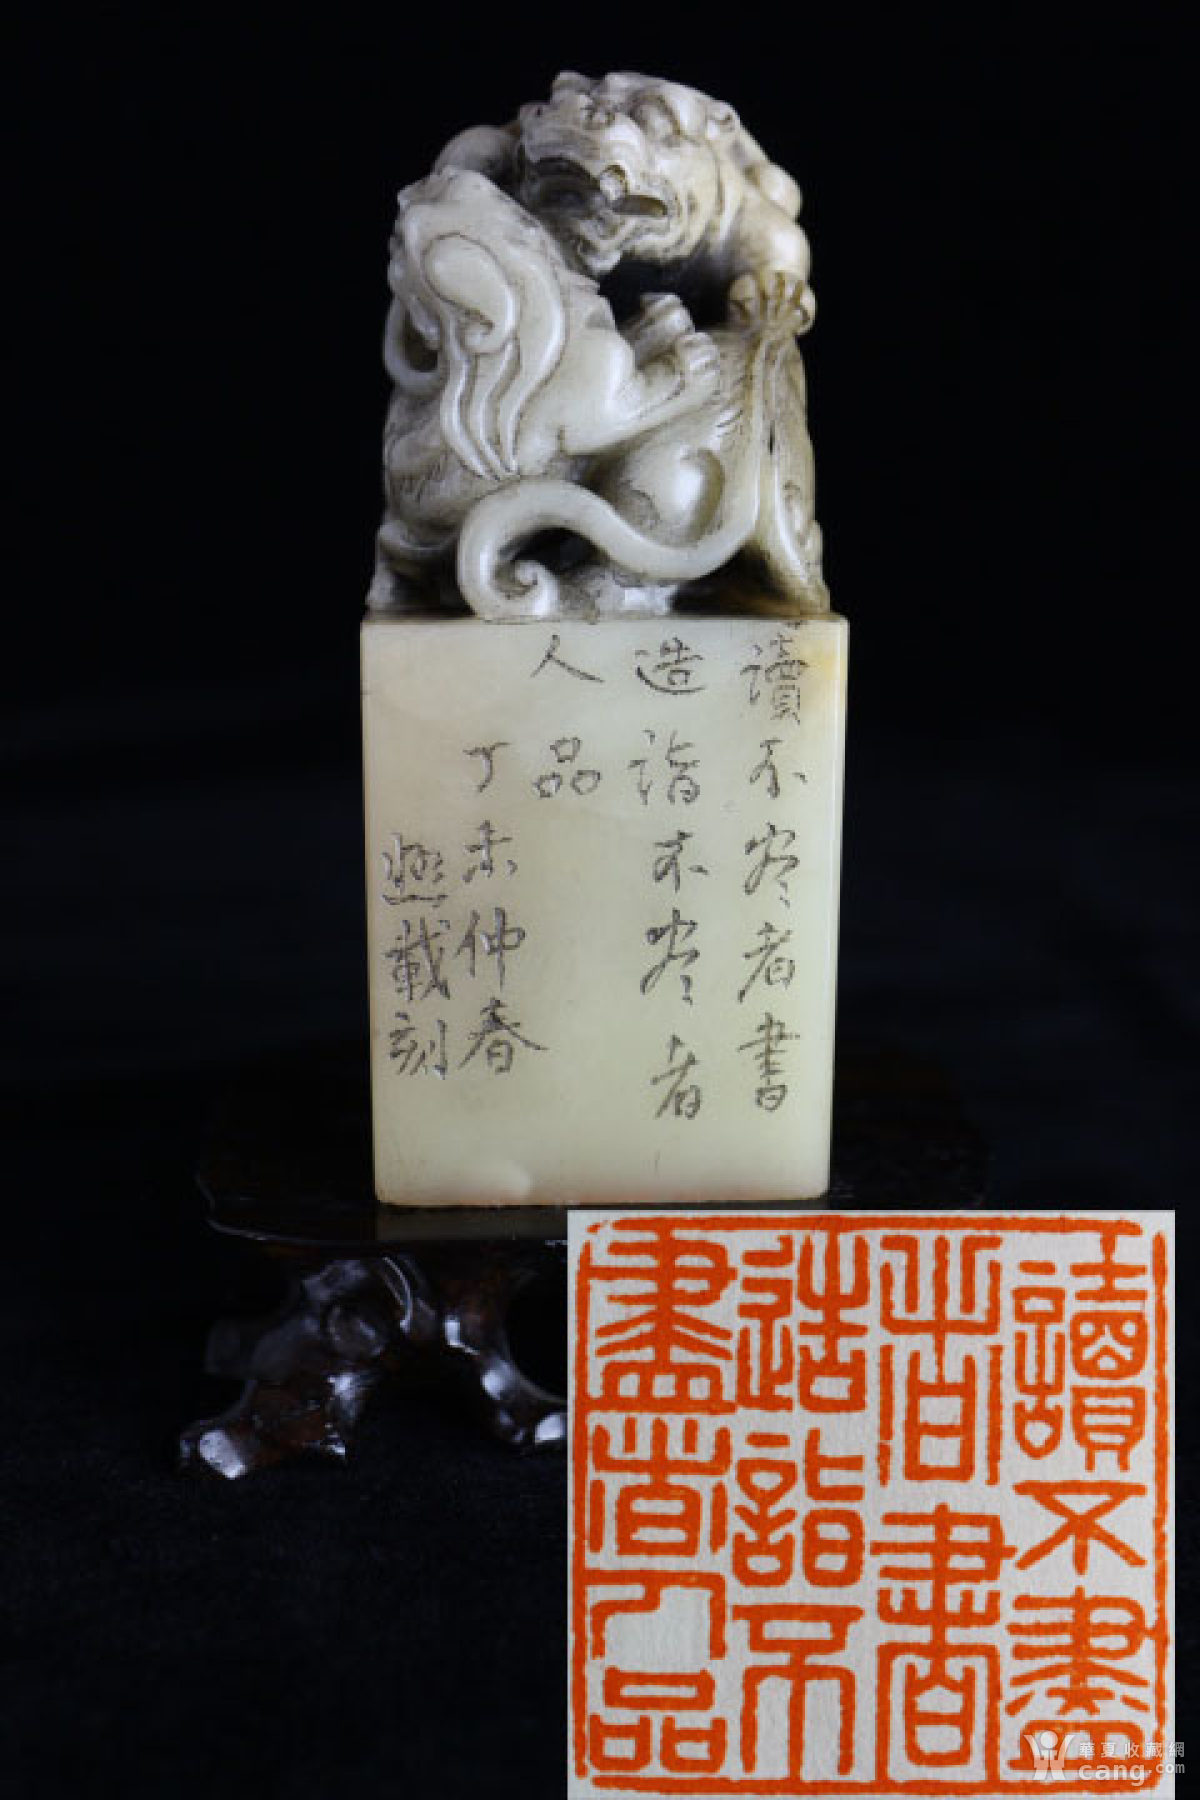 讀不尽者書
造詣不尽者
人品
丁未仲春
熙載刻
讀不盡
者書
造詣不
盡者人品
華夏收藏網
cang.com